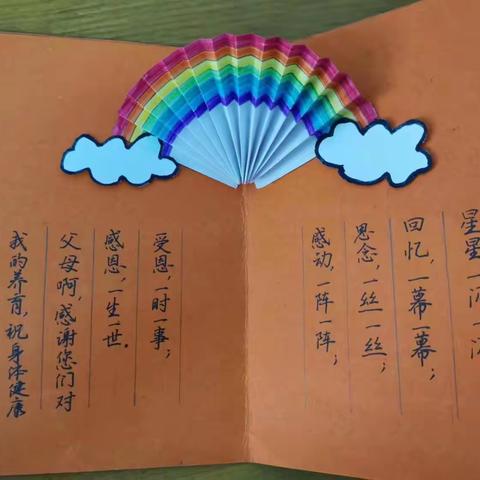 星星一闪一闪
回忆,一幕一幕;
思念,一丝一丝;
感动,一阵一阵;
受恩,一时一事;
感恩,一生一世。
父母啊,感谢您们对
我的养育,祝身体健康